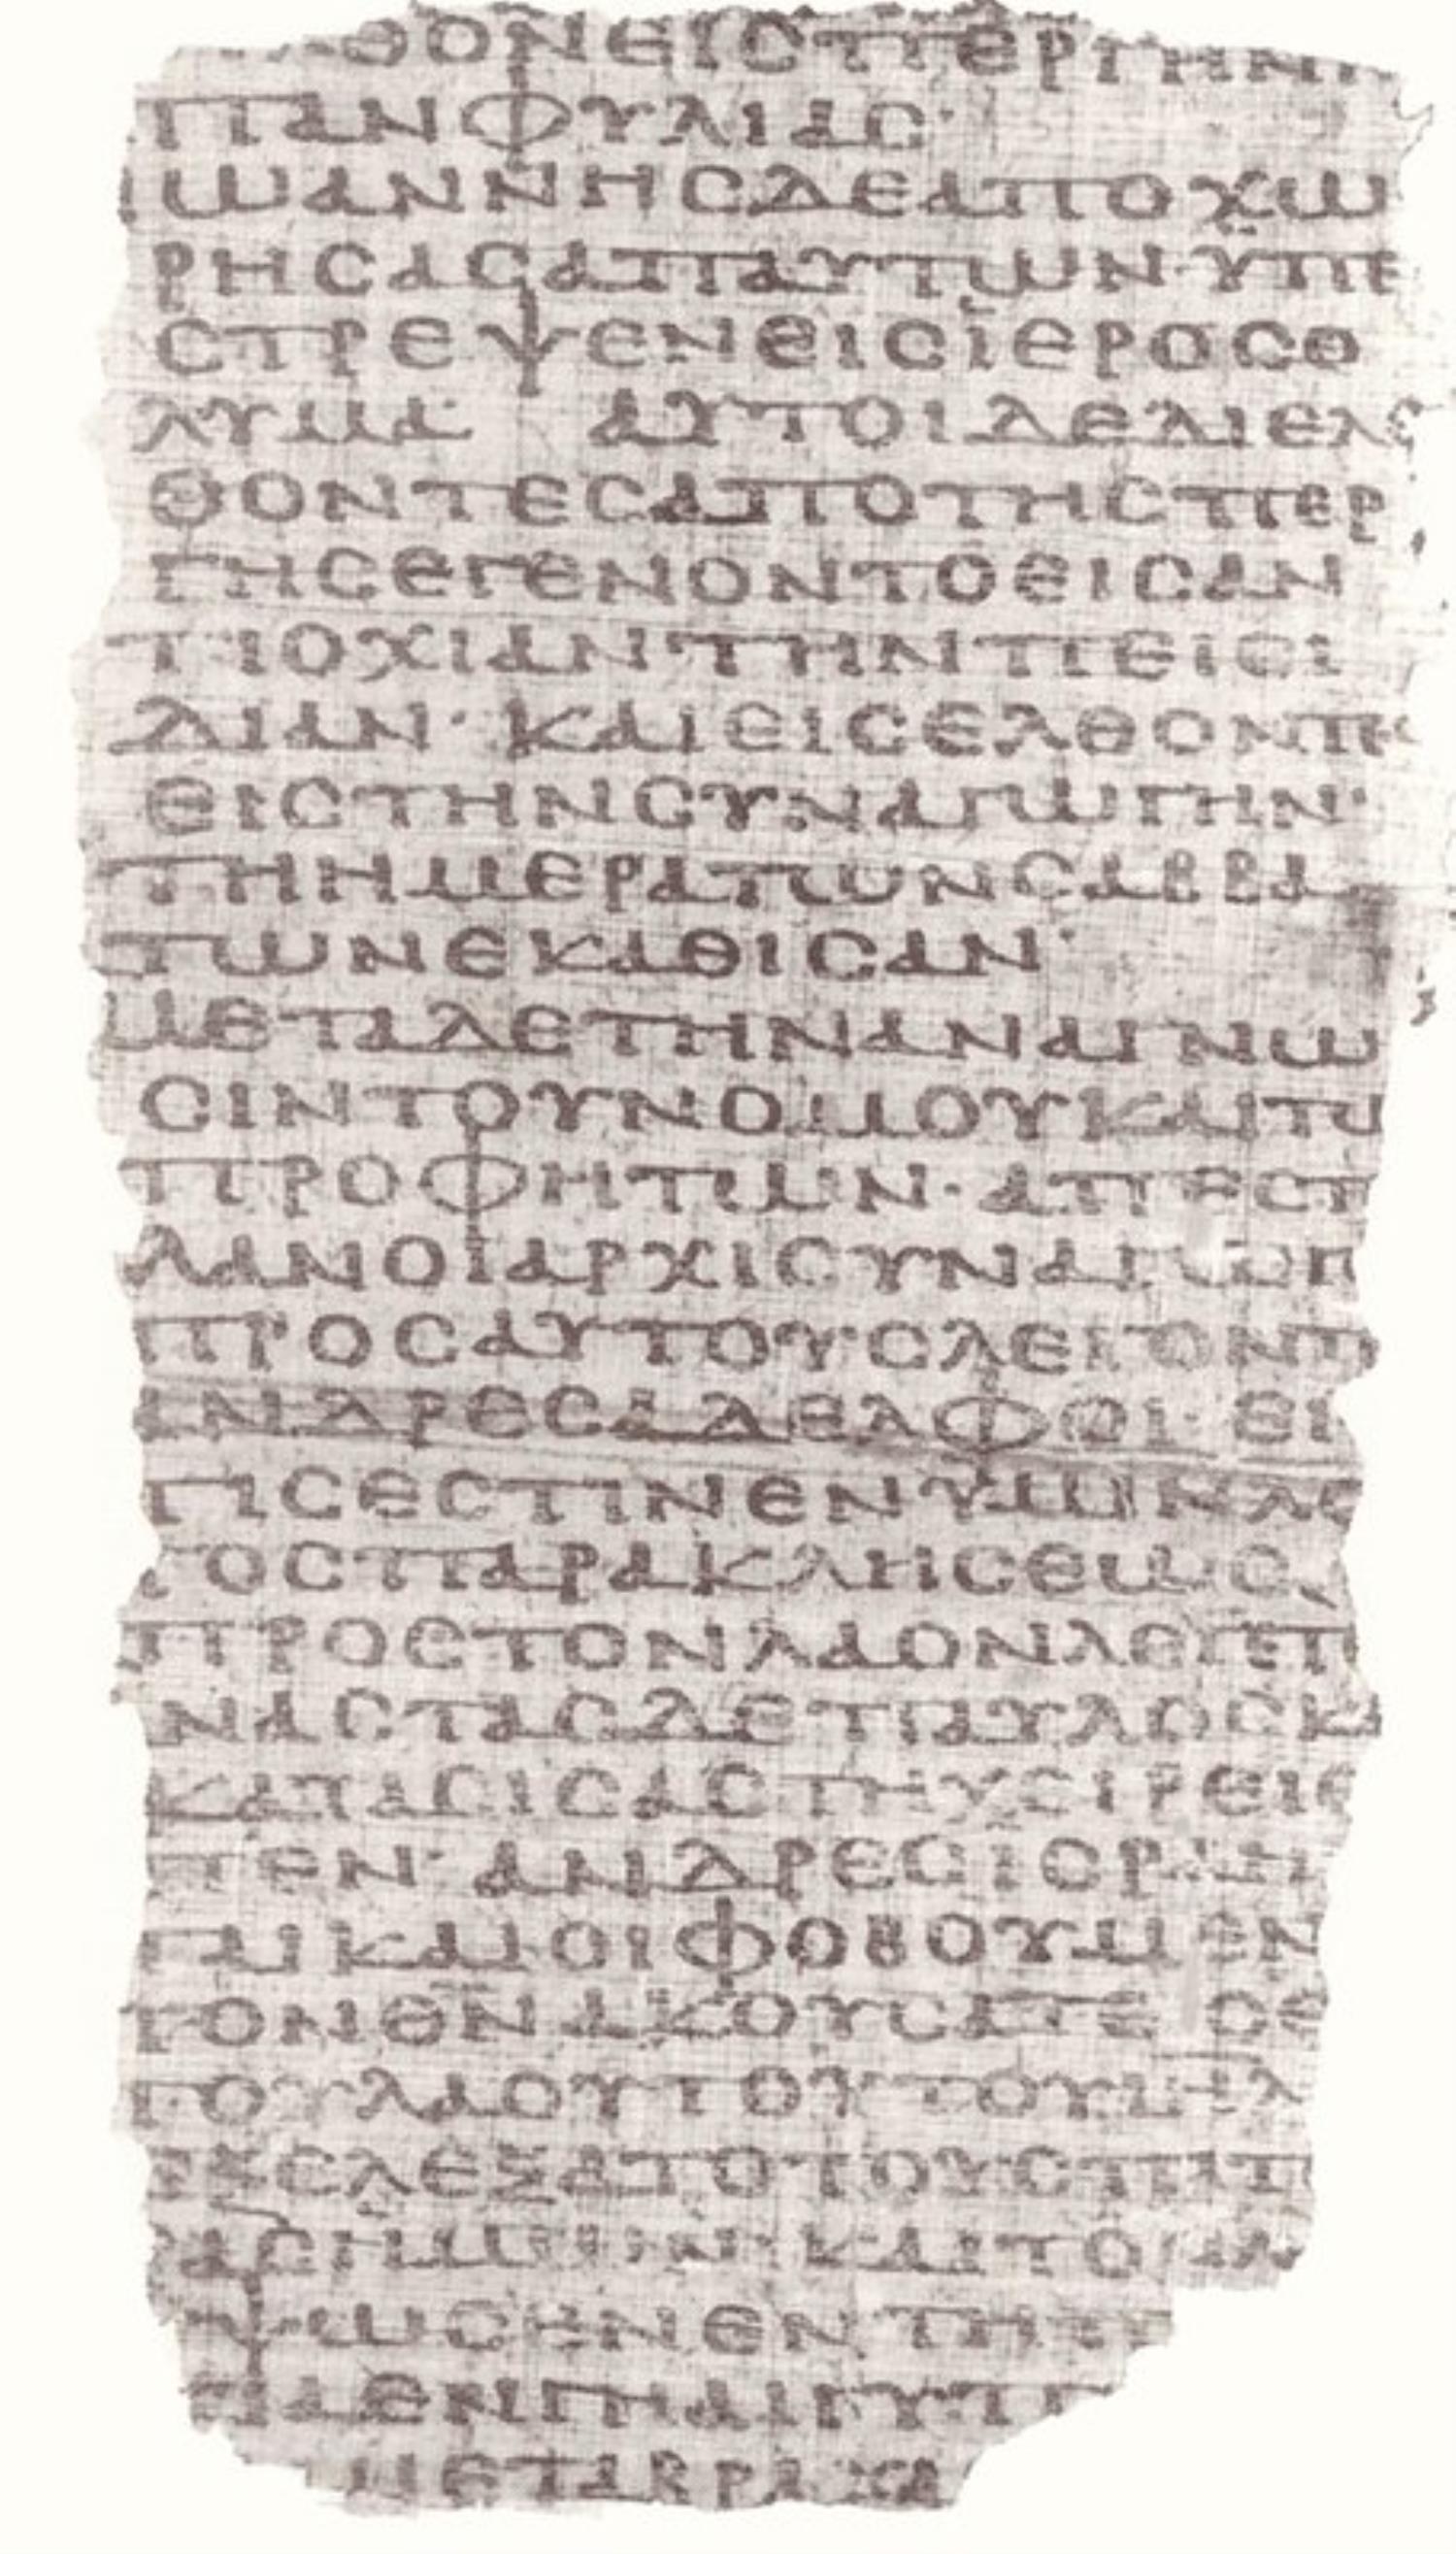 ΘΟΝΕΙΣΠΕΡΓΗΝ
ΠΑΝΦΥΛΙΑΣ·
ΙΩΑΝΝΗΣΔΕΑΠΟΧΩ
ΡΗΣΑΣΑΠΑΥΤΩΝ·ΫΠΕ
ΣΤΡΕΨΕΝΕΙΣΪΕΡΟΣΟ
ΛΥΜΑ· ΑΥΤΟΙΔΕΔΙΕΛ
ΘΟΝΤΕΣΑΠΟΤΗΣΠΕΡ
ΓΗΣΕΓΕΝΟΝΤΟΕΙΣΑΝ
ΤΙΟΧΙΑΝΤΗΝΠΕΙΣΙ
ΔΙΑΝ· ΚΑΙΕΙΣΕΛΘΟΝΤΕ
ΕΙΣΤΗΝΣΥΝΑΓΩΓΗΝ·
ΤΗΗΜΕΡΑΤΩΝΣΑΒΒΑ
ΤΩΝΕΚΑΘΙΣΑΝ·
ΜΕΤΑΔΕΤΗΝΑΝΑΓΝΩ
ΣΙΝΤΟΥΝΟΜΟΥΚΑΙΤΩ
ΠΡΟΦΗΤΩΝ· ΑΠΕΣΤ
ΛΑΝΟΙΑΡΧΙΣΥΝΑΓΩΓ
ΠΡΟΣΑΥΤΟΥΣΛΕΓΟΝΤ
ΑΝΔΡΕΣΑΔΕΛΦΟΙ· ΕΙ
ΤΙΣΕΣΤΙΝΕΝΫΜΙΝΛΟ
ΓΟΣΠΑΡΑΚΛΗΣΕΩΣ
ΠΡΟΣΤΟΝΛΑΟΝΛΕΓΕΤ
ΝΑΣΤΑΣΔΕΠΑΥΛΟΣΚ
ΚΑΤΑΣΙΣΑΣΤΗΧΕΙΡΕΙ
ΠΕΝ· ΑΝΔΡΕΣΙΣΡΑΗ
ΤΑΙΚΑΙΟΙΦΟΒΟΥΜΕΝ
ΤΟΝΘΝΑΚΟΥΣΑΤΕ ΟΘ
ΤΟΥΛΑΟΥΤΟΥΤΟΥΙΗΛ
ΕΞΕΛΕΞΑΤΟΤΟΥΣΠΑΤ
ΡΑΣΗΜΩΝ ΚΑΙΤΟΝΛΑ
ΨΩΣΕΝΕΝΤΗ
ΕΙΑΕΝΓΗΑΙΓΥΠΤ
ΜΕΤΑΒΡΑΧΙ